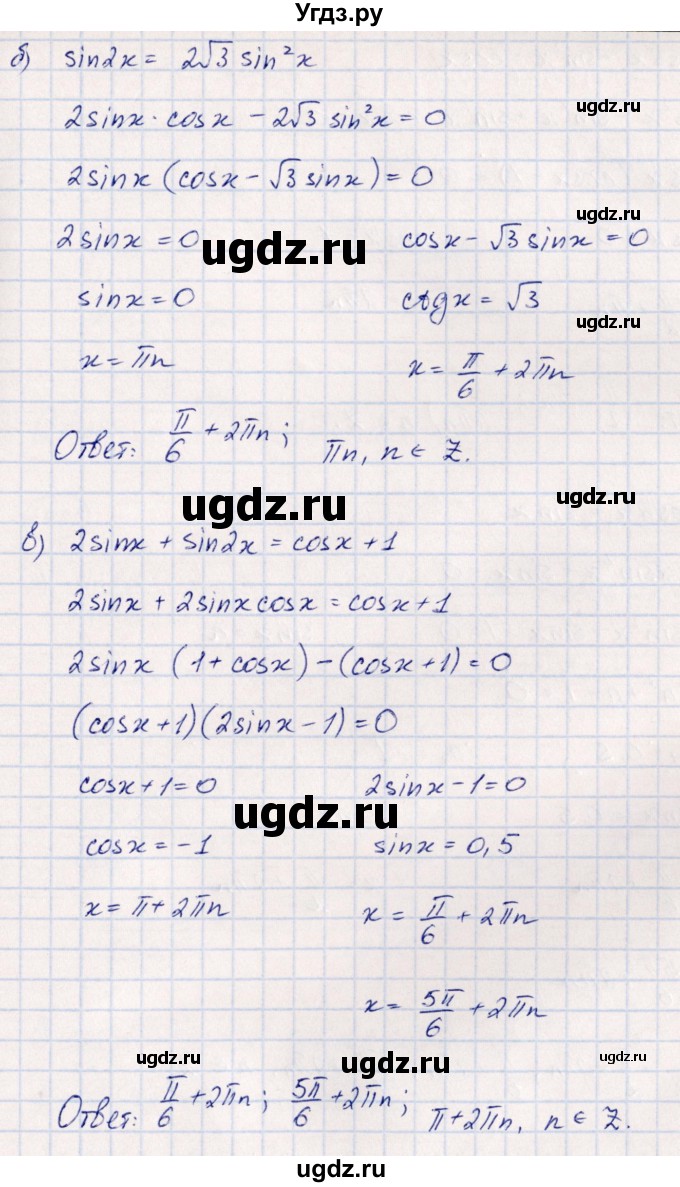 Угдз.ру
б) sin2x = 2√3 sin²x
ugdz.ru
2sinx · cosx − 2√3 sin²x = 0
2sinx (cosx − √3 sinx) = 0
ugdz.ru
2sinx = 0 cosx − √3 sinx = 0
ugdz.ru
sinx = 0 ctgx = √3
ugdz.ru
x = πn x = π/6 + 2πn
Ответ: π/6 + 2πn; πn, n ∈ Z.
ugdz.ru
ugdz.ru
в) 2sinx + sin2x = cosx + 1
2sinx + 2sinxcosx = cosx + 1
2sinx (1 + cosx) − (cosx + 1) = 0
(cosx + 1)(2sinx − 1) = 0
cosx + 1 = 0 2sinx − 1 = 0
ugdz.ru
cosx = −1 sinx = 0,5
x = π + 2πn x = π/6 + 2πn
x = 5π/6 + 2πn
ugdz.ru
ugdz.ru
ugdz.ru
Ответ: π/6 + 2πn; 5π/6 + 2πn; π + 2πn, n ∈ Z.
ugdz.ru
ugdz.ru